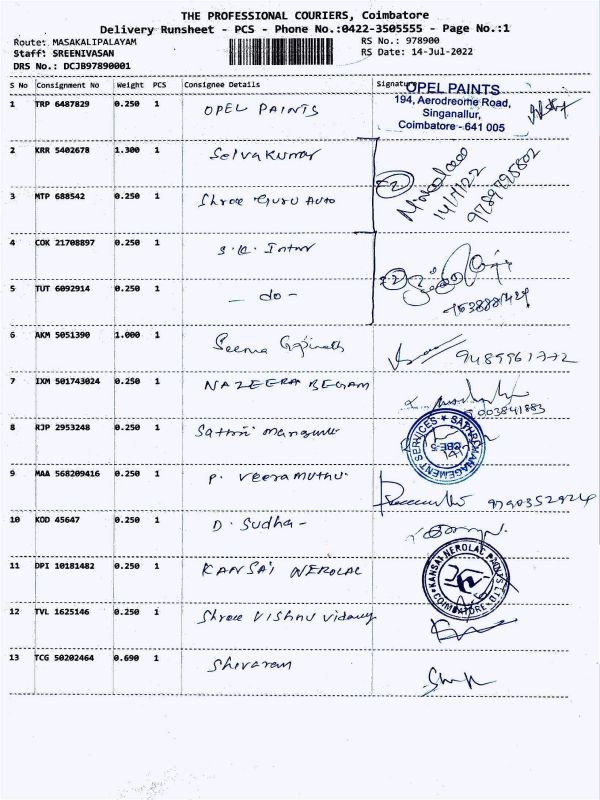 THE PROFESSIONAL COURIERS, Coimbatore
Delivery Runsheet - PCS - Phone No.:0422-3505555 - Page No.:1
Route: MASAKALIPALAYAM RS No.: 978900
Staff: SREENIVASAN RS Date: 14-Jul-2022
DRS No.: DCJB97890001
S No Consignment No Weight PCS Consignee Details Signature
OPEL PAINTS
194, Aerodreome Road,
Singanallur,
Coimbatore - 641 005
1 TRP 6487829 0.250 1 OPEL PAINTS
2 KRR 5402678 1.300 1 Selva Kumar
3 MTP 688542 0.250 1 Shree Guru Auto
14/7/22
9789795802
4 COK 21708897 0.250 1 S.K.
5 TUT 6092914 0.250 1 - do -
6 AKM 5051390 1.000 1 Seema Gopinath
9489961772
7 IXM 501743024 0.250 1 NAZEERA BEGAM
8 RJP 2953248 0.250 1 Sathri
SATHRI MANAGEMENT SERVICES
CBE-5
9 MAA 568209416 0.250 1 P. Veeramuthu
9790352924
10 KOD 45647 0.250 1 D. Sudha -
11 DPI 10181482 0.250 1 KANSAI NEROLAC
KANSAI NEROLAC PAINTS LTD.
COIMBATORE
12 TVL 1625146 0.250 1 Shree Vishnu
13 TCG 50202464 0.690 1 Shivaram